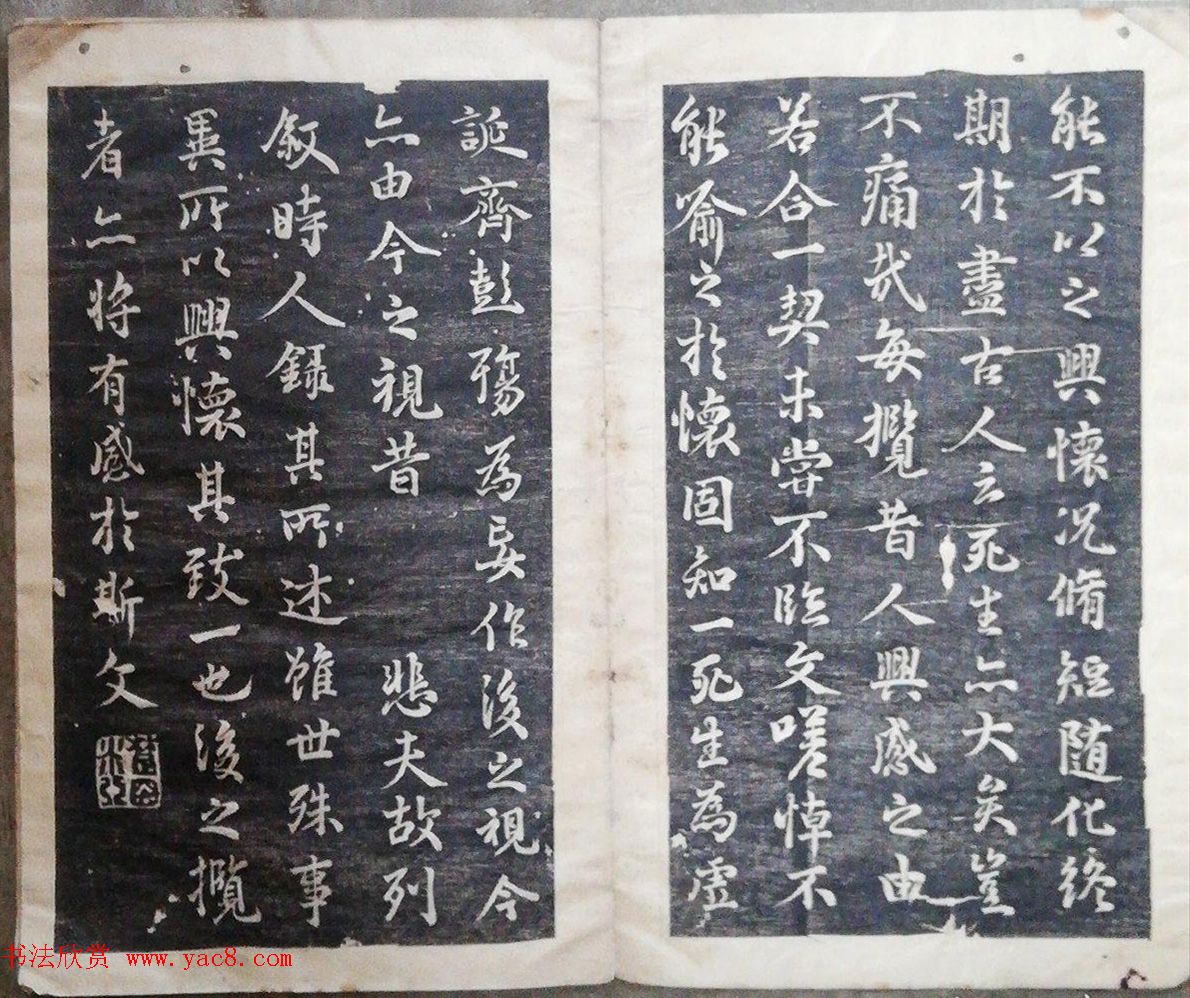 能不以之興懷況脩短随化終
期於盡古人云死生亦大矣豈
不痛哉每攬昔人興感之由
若合一契未嘗不臨文嗟悼不
能喻之於懷固知一死生為虛
誕齊彭殤為妄作後之視今
亦由今之視昔 悲夫故列
敘時人錄其所述雖世殊事
異所以興懷其致一也後之攬
者亦將有感於斯文
书法欣赏 www.yac8.com